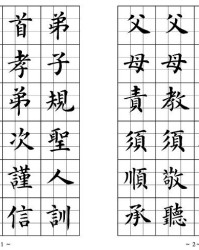 弟子規聖人訓
首孝弟次謹信
父母教須敬聽
父母責須順承
1 ~
~ 2 ~